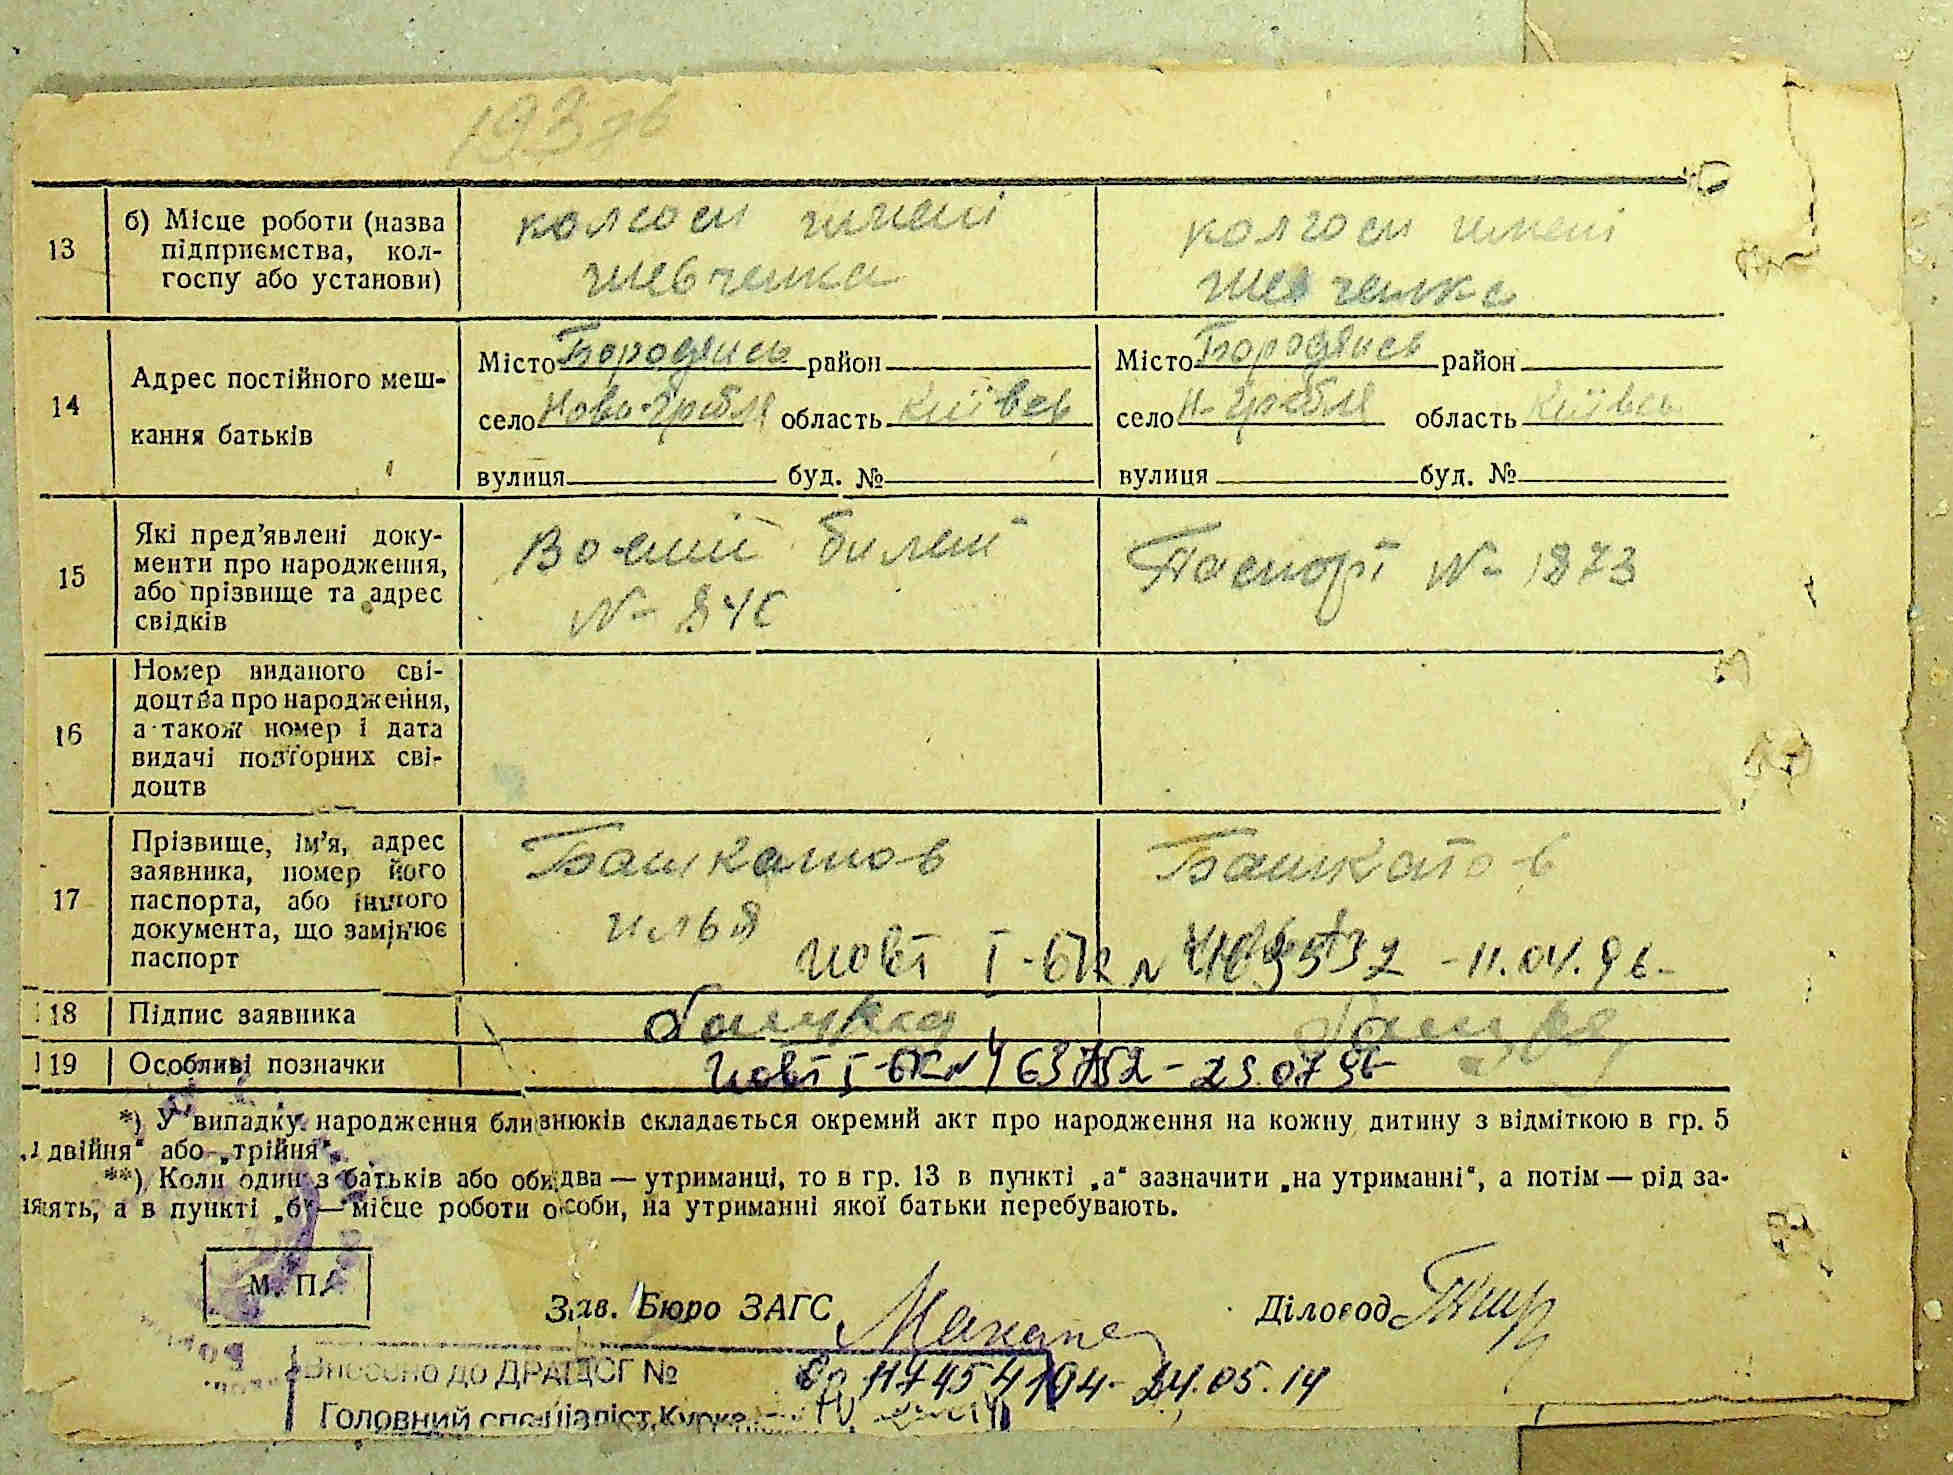 193 зв
13
б) Місце роботи (назва
підприємства, кол-
госпу або установи)
колгосп імені
Шевченка
колгосп імені
Шевченка
14
Адрес постійного меш-
кання батьків
Місто Бородянсь район
село Ново-Гребля область Київсь
вулиця буд. №
Місто Бородянсь район
село Н-Гребля область Київсь
вулиця буд. №
15
Які пред'явлені доку-
менти про народження,
або прізвище та адрес
свідків
Воєний билет
№ 846
Паспорт № 1873
16
Номер виданого сві-
доцтва про народження,
а також номер і дата
видачі повторних сві-
доцтв
17
Прізвище, ім'я, адрес
заявника, номер його
паспорта, або іншого
документа, що замінює
паспорт
Башкатов
Илья
Башкатов
повт І-БК № -11.04.96-
18
Підпис заявника
19
Особливі позначки
повт І-БК № 463752-23.07.96
*) У випадку народження близнюків складається окремий акт про народження на кожну дитину з відміткою в гр. 5
„двійня“ або „трійня“.
**) Коли один з батьків або обидва — утриманці, то в гр. 13 в пункті „а“ зазначити „на утриманні“, а потім — рід за-
нять, а в пункті „б“ — місце роботи особи, на утриманні якої батьки перебувають.
М. П.
Зав. Бюро ЗАГС
Діловод
Внесено до ДРАЦСГ №
117454194-24.05.14
Головний спеціаліст